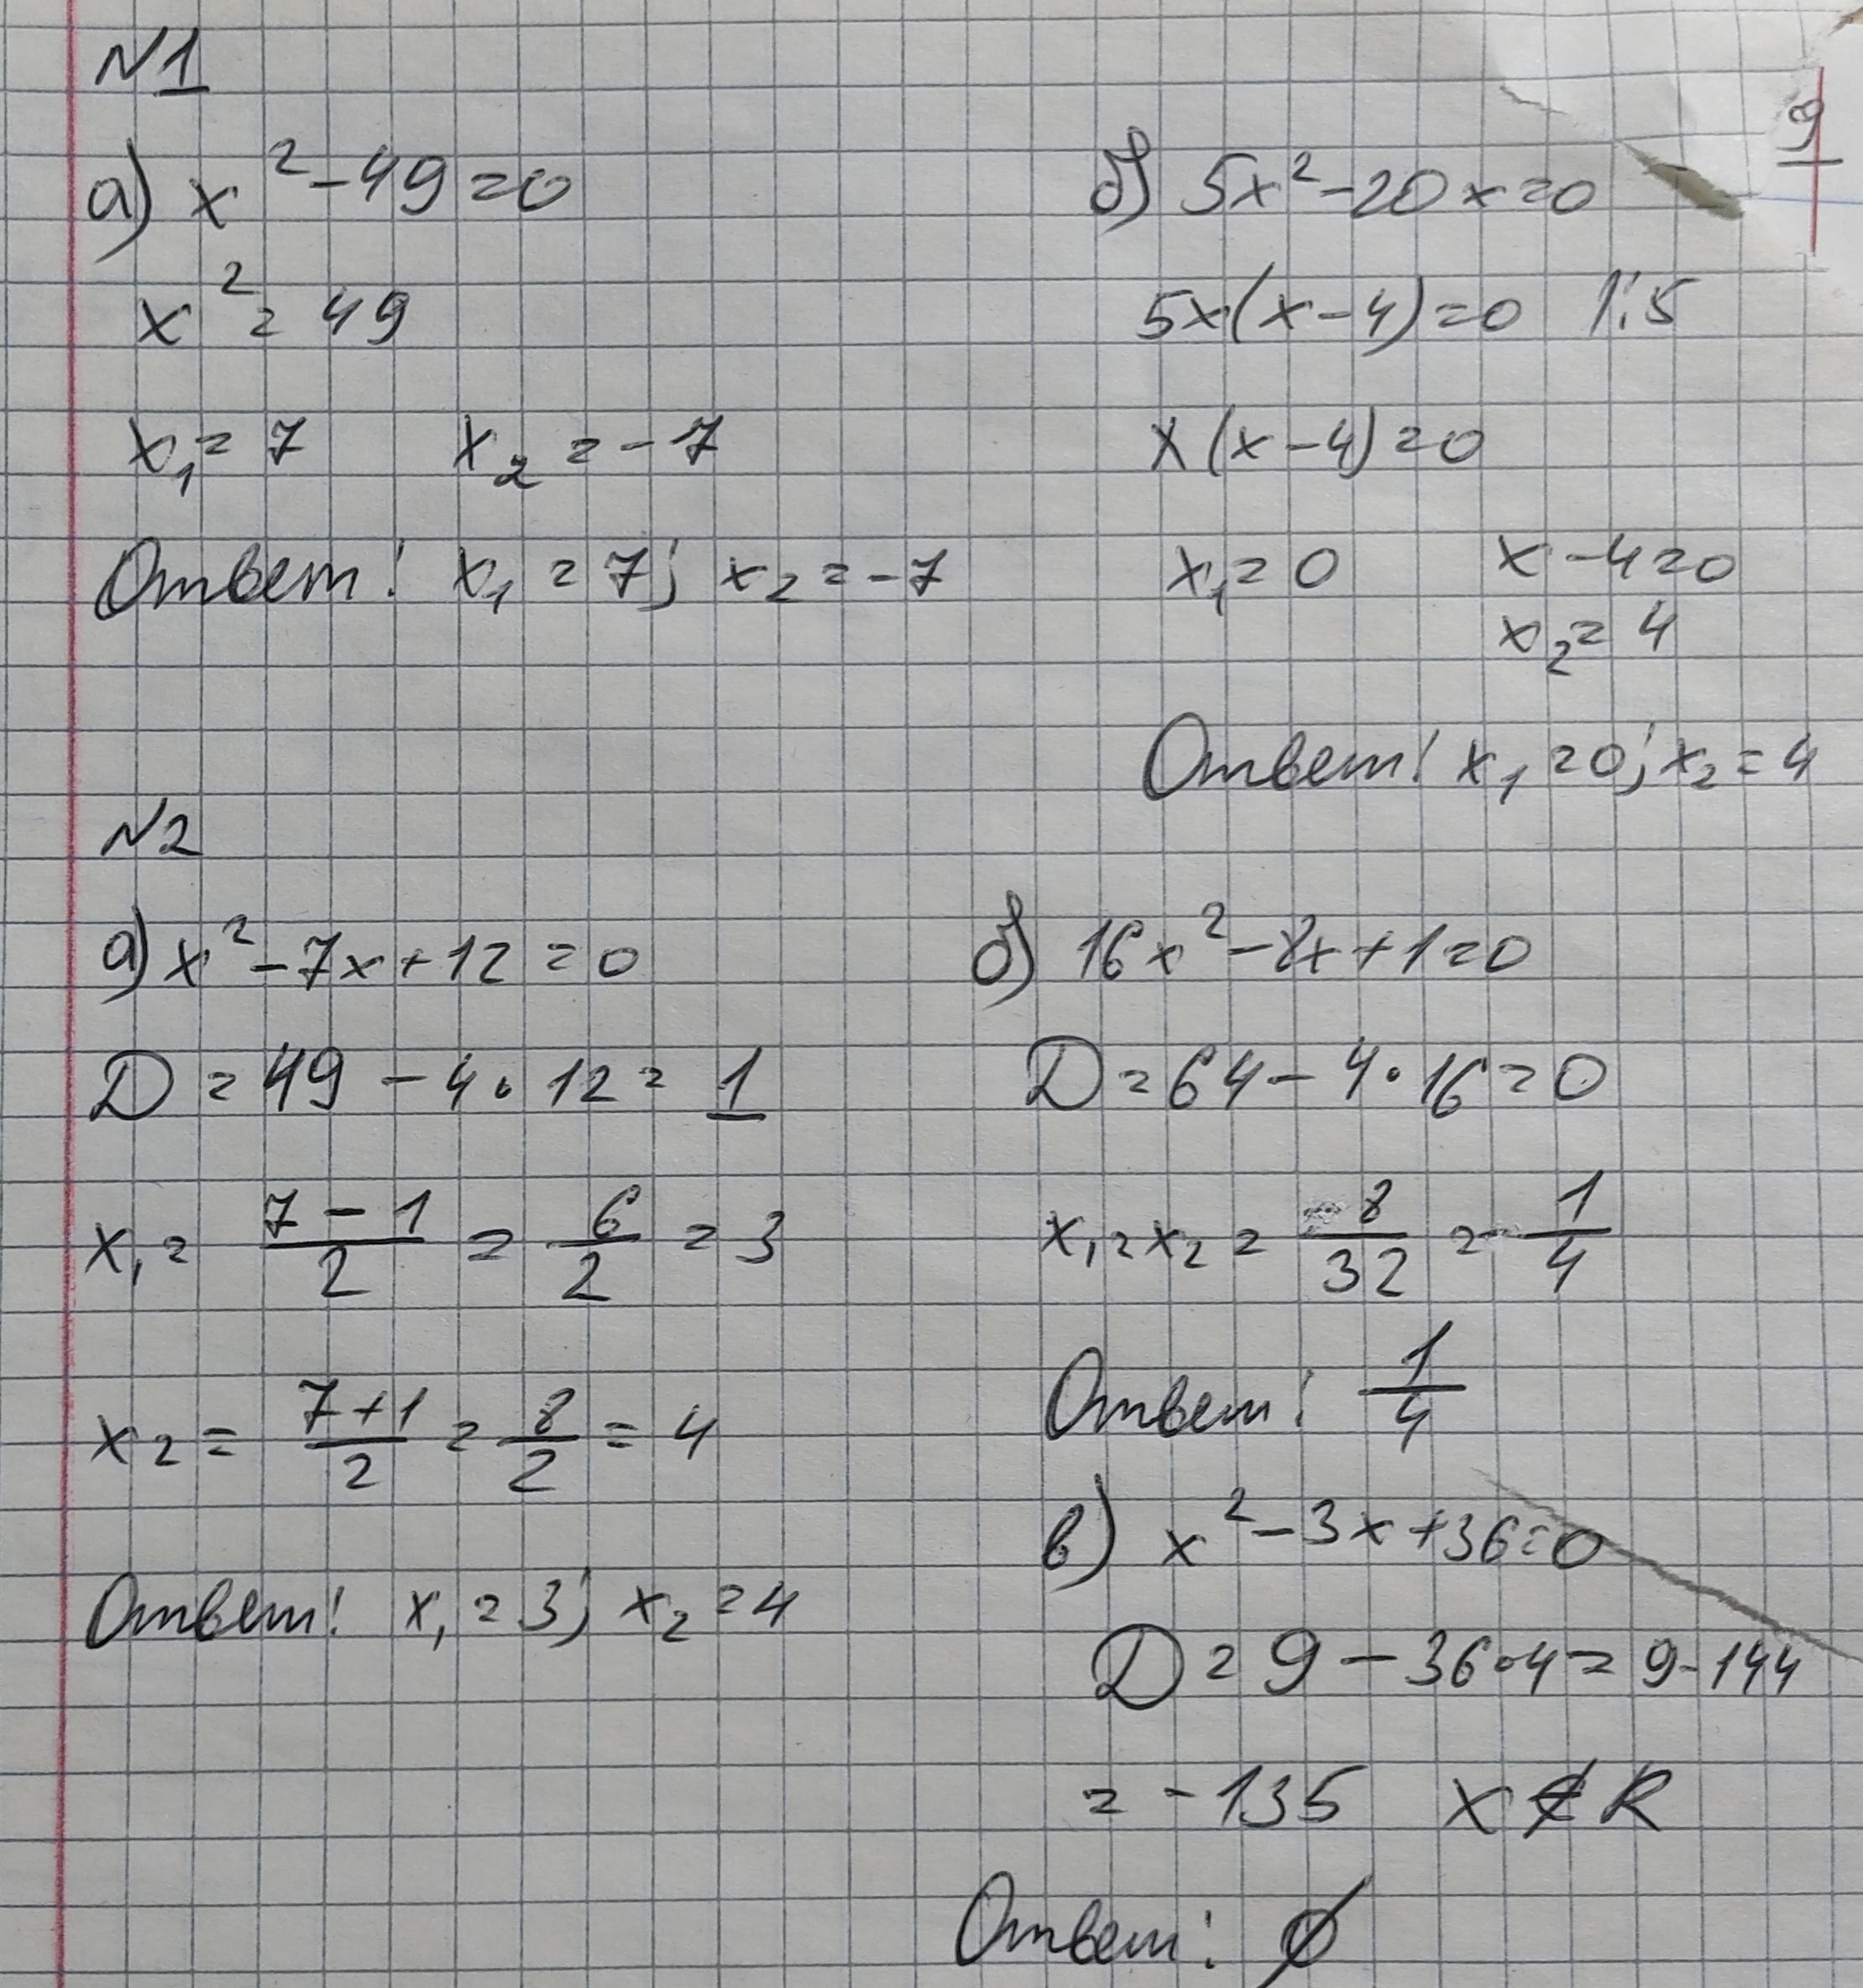 №1
а) x² - 49 = 0
x² = 49
x₁ = 7 x₂ = -7
Ответ: x₁ = 7; x₂ = -7
б) 5x² - 20x = 0
5x(x - 4) = 0 |:5
x(x - 4) = 0
x₁ = 0 x - 4 = 0
x₂ = 4
Ответ: x₁ = 0; x₂ = 4
№2
а) x² - 7x + 12 = 0
D = 49 - 4 · 12 = 1
x₁ = (7 - 1)/2 = 6/2 = 3
x₂ = (7 + 1)/2 = 8/2 = 4
Ответ: x₁ = 3; x₂ = 4
б) 16x² - 8x + 1 = 0
D = 64 - 4 · 16 = 0
x₁ = x₂ = 8/32 = 1/4
Ответ: 1/4
в) x² - 3x + 36 = 0
D = 9 - 36 · 4 = 9 - 144
= -135 x ∉ R
Ответ: ∅